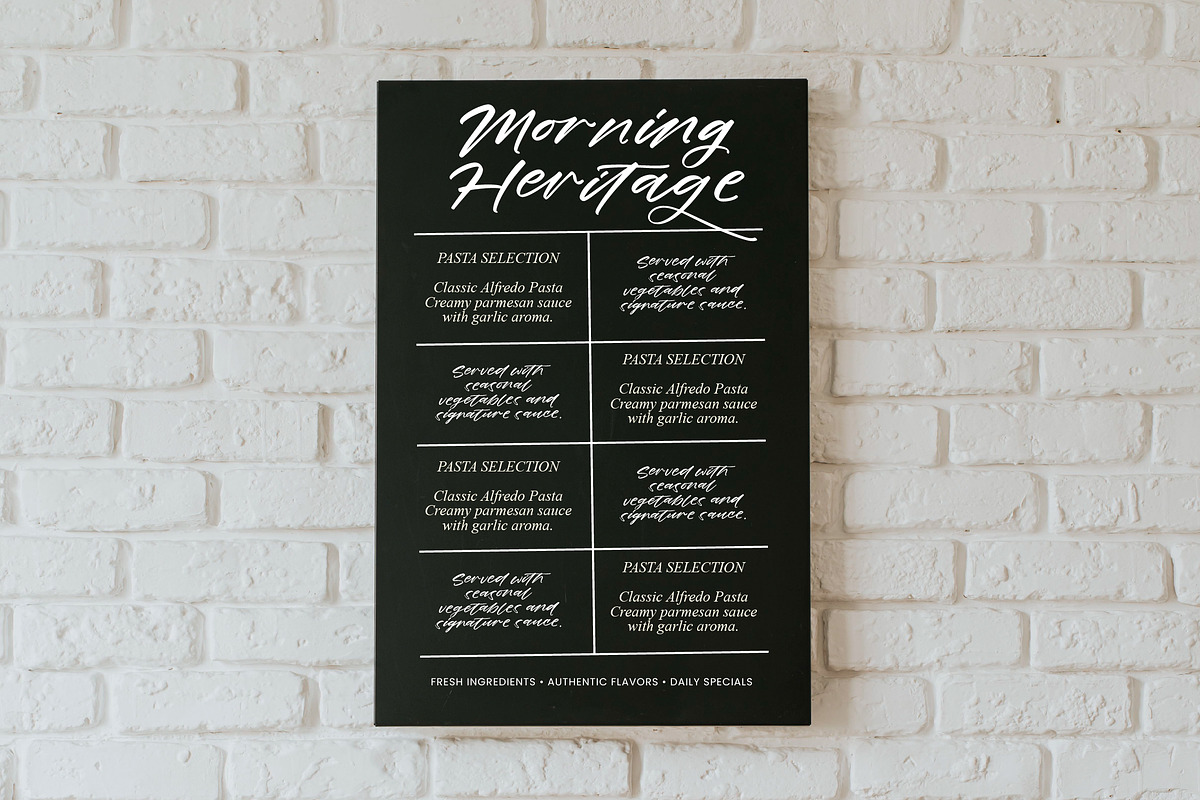 Morning
Heritage
PASTA SELECTION
Classic Alfredo Pasta
Creamy parmesan sauce
with garlic aroma.
Served with
seasonal
vegetables and
signature sauce.
Served with
seasonal
vegetables and
signature sauce.
PASTA SELECTION
Classic Alfredo Pasta
Creamy parmesan sauce
with garlic aroma.
PASTA SELECTION
Classic Alfredo Pasta
Creamy parmesan sauce
with garlic aroma.
Served with
seasonal
vegetables and
signature sauce.
Served with
seasonal
vegetables and
signature sauce.
PASTA SELECTION
Classic Alfredo Pasta
Creamy parmesan sauce
with garlic aroma.
FRESH INGREDIENTS • AUTHENTIC FLAVORS • DAILY SPECIALS